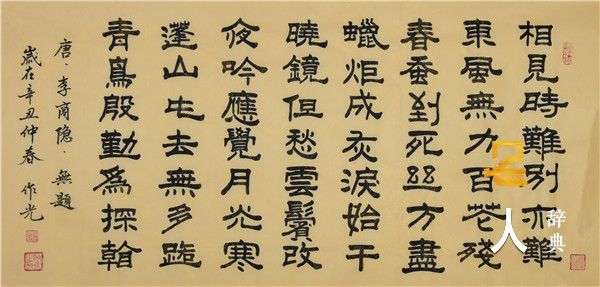 相見時難別亦難
東風無力百花殘
春蚕到死丝方盡
蠟炬成灰淚始干
曉鏡但愁雲鬢改
夜吟應覺月光寒
蓬山此去無多路
青鳥殷勤爲探看
唐·李商隐·無題
歲在辛丑仲春 作光
人
辞典